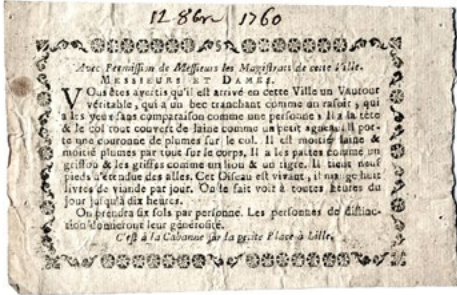 12 8bre 1760
Avec Permission de Messieurs les Magistrats de cette Ville.
MESSIEURS ET DAMES.
VOus êtes avertis qu'il est arrivé en cette Ville un Vautour
véritable, qui a un bec tranchant comme un rasoir, qui
a les yeux sans comparaison comme une personne; Il a la tête
& le col tout couvert de laine comme un petit agneau. Il por-
te une couronne de plumes sur le col. Il est moitié laine &
moitié plumes par tout sur le corps, Il a les pattes comme un
griffon & les griffes comme un lion & un tigre. Il tient neuf
pieds d'étendue des aîles. Cet Oiseau est vivant, il mange huit
livres de viande par jour. On le fait voir à toutes heures du
jour jusqu'à dix heures.
On prendra six sols par personne. Les personnes de distinc-
tion donneront leur générosité.
C'est à la Cabanne sur la petite Place à Lille.